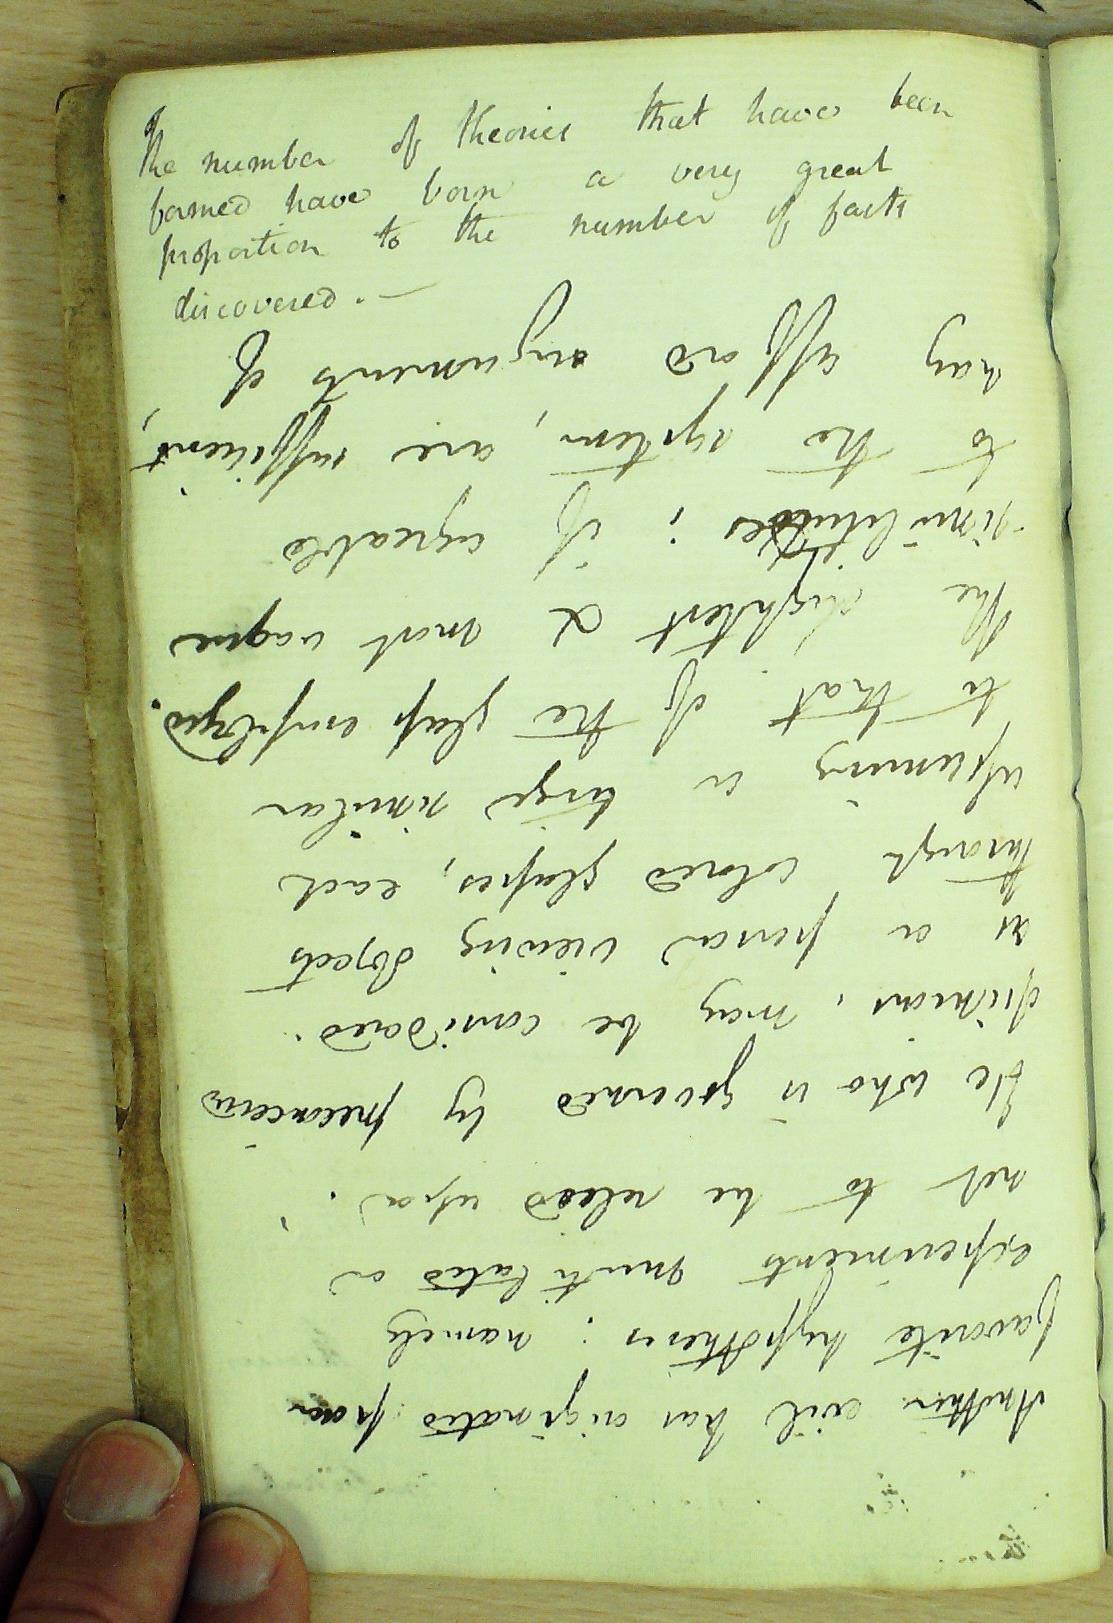 The number of theories that have been
formed have born a very great
proportion to the number of facts
discovered. —
Another evil has originated from
favorite hypotheses: namely
experiments mutilated or
not to be relied upon.
He who is governed by preconceived
opinions, may be considered
as a person viewing objects
through colored glasses, each
assuming a tinge similar
to that of the glass employed.
The slightest & most vague
similitudes; if agreable
to the system, are sufficient,
may afford arguments of